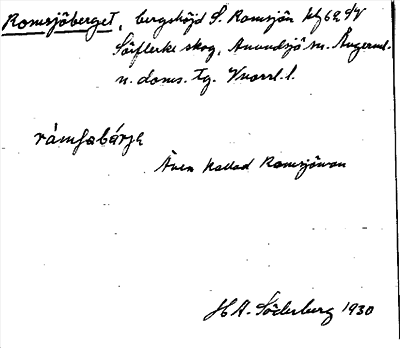 Romsjöberget, bergshöjd S. Romsjön kbl 62 SV
Söflerke skog, Anundsjö sn. Ångerml.
n. doms. tg. Vnorrl. l.
råmʃabárjə
Även kallad Romsjöwon
H A. Söderberg 1930